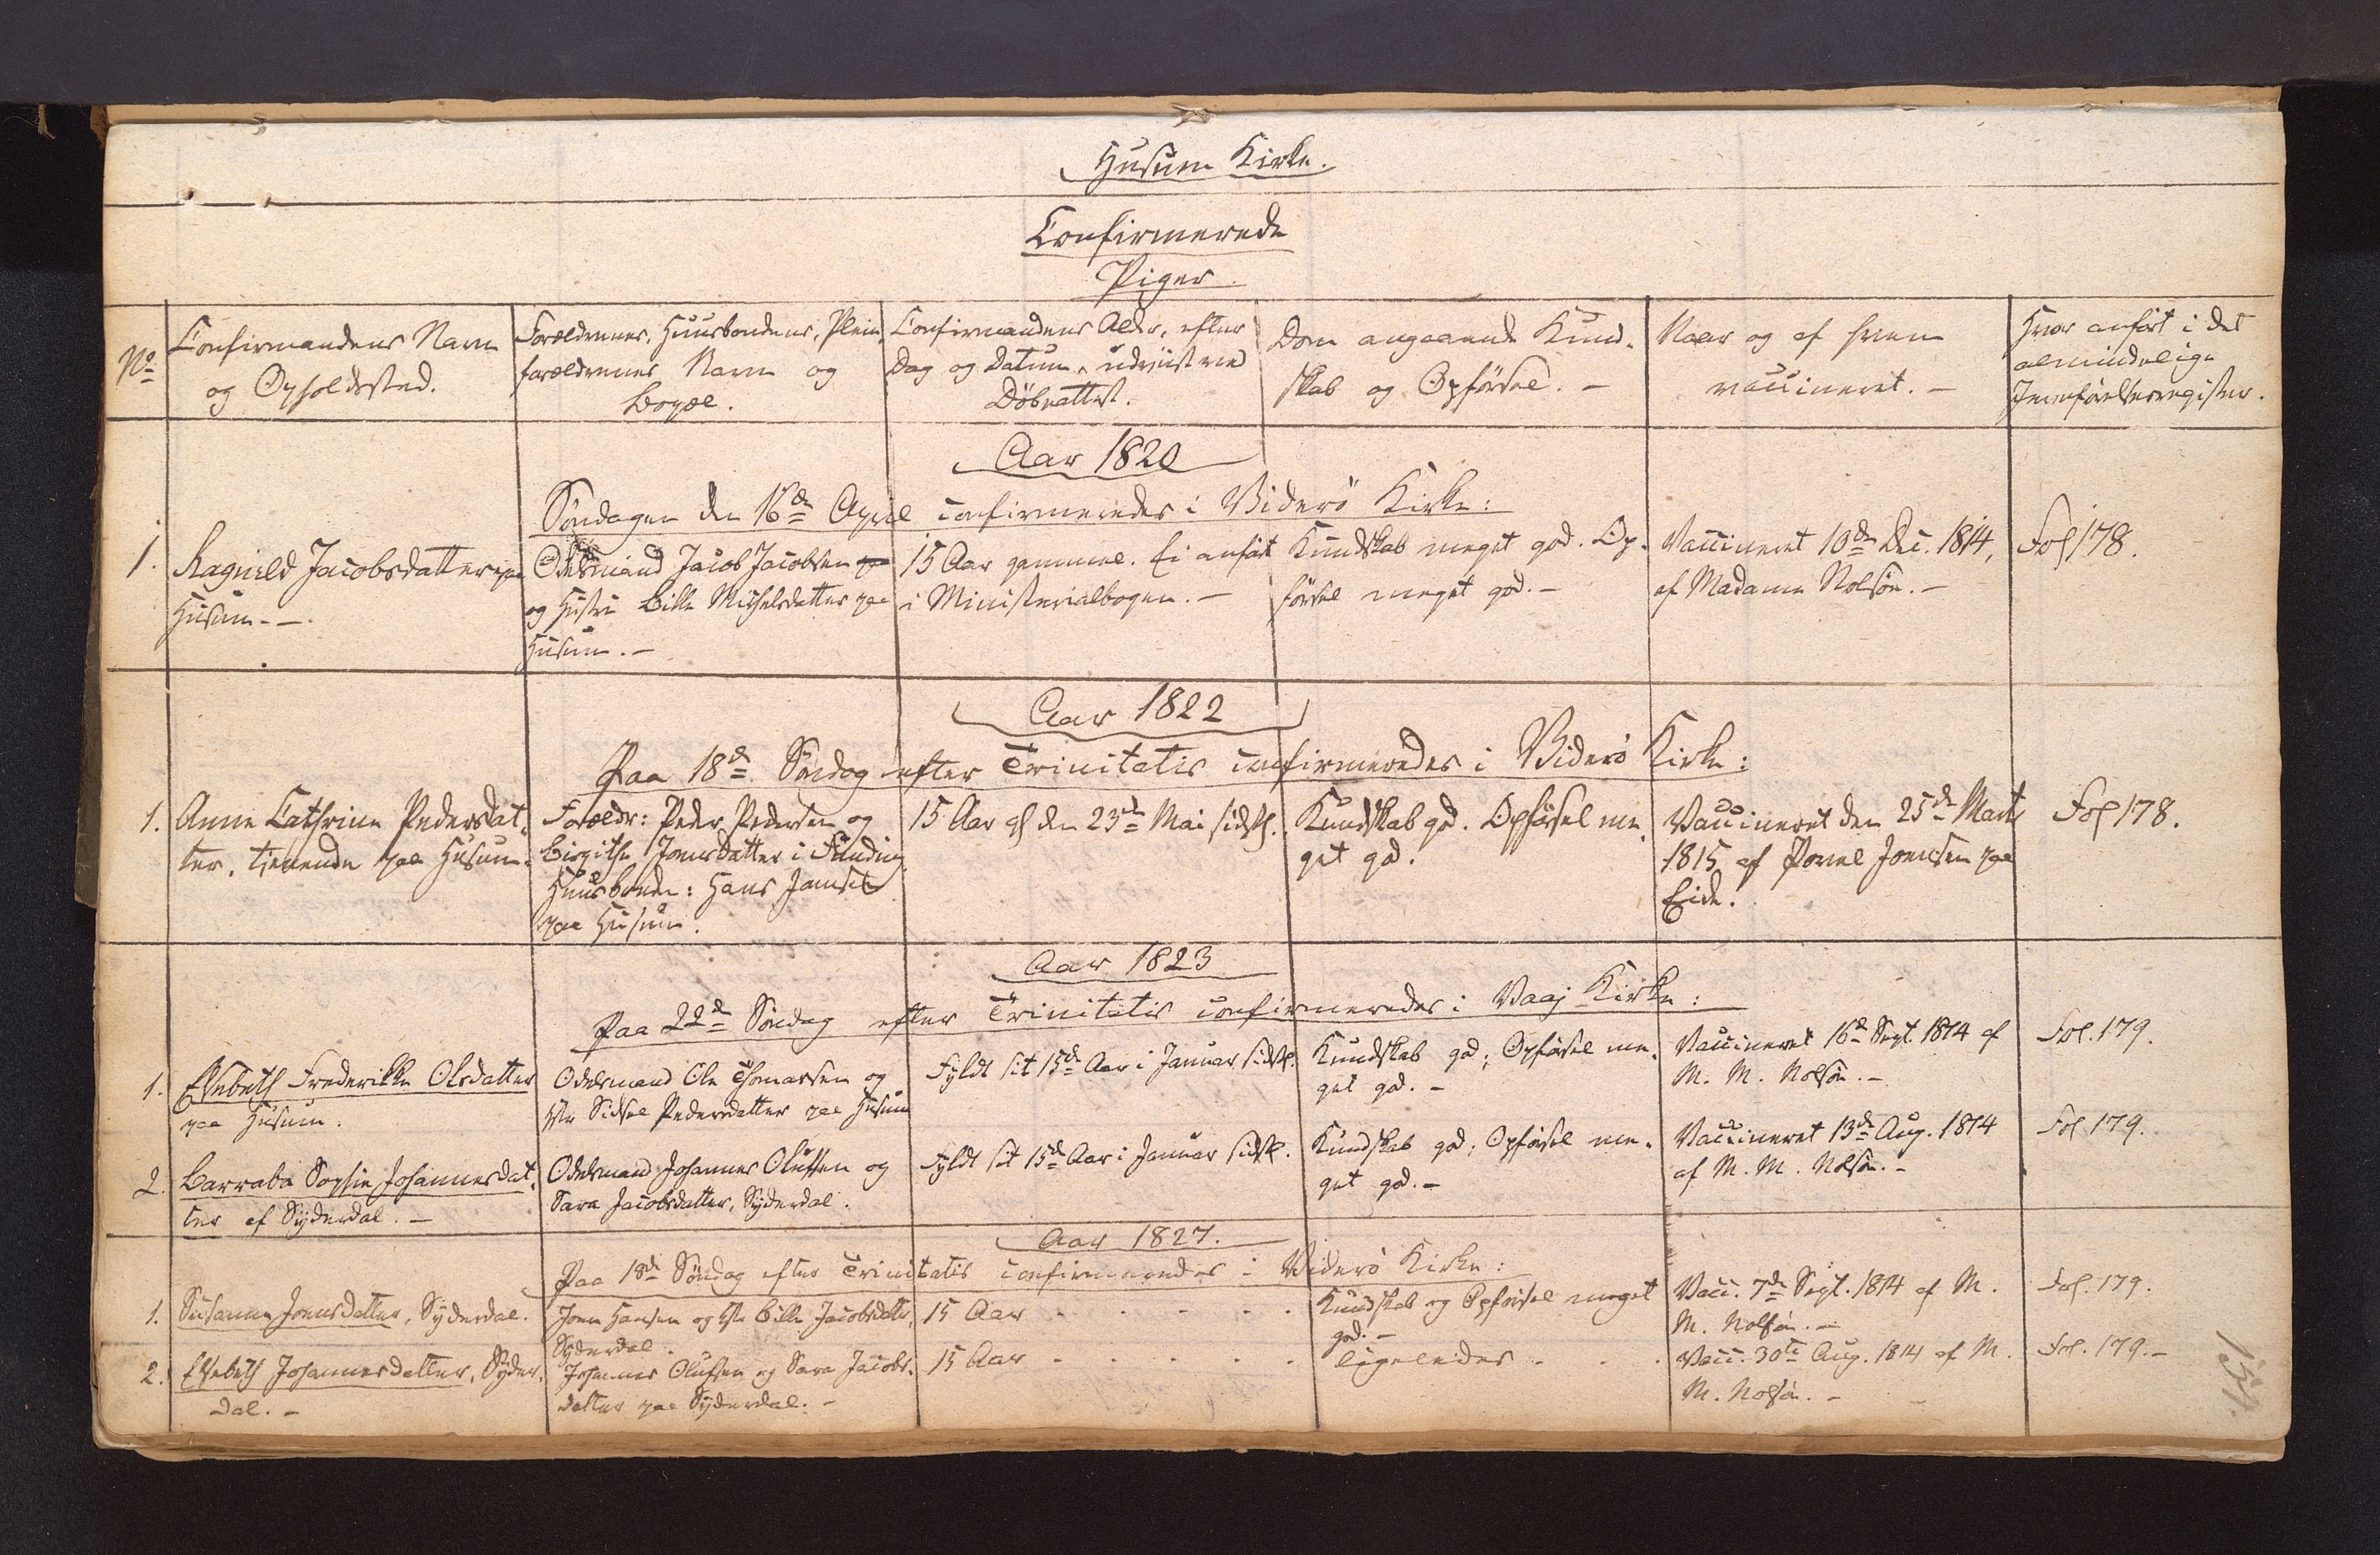 Husum Kirke.
Confirmerede
Piger.
No
Confirmandens Navn
og Opholdssted.
Forældrenes, Huusbondens, Pleie-
forældrenes Navn og
Bopæl.
Confirmandens Alder, efter
Dag og Datum, udviist ved
Döbeattest.
Dom angaaende Kund-
skab og Opförsel. -
Naar og af hvem
vaccineret. -
Hvor anfört i det
almindelige
Jevnförelsesregister.
Aar 1820
Söndagen den 16de April confirmeredes i Viderö Kirke:
1.
Ragnild Jacobsdatter paa
Husum. -
Odelsmand Jacob Jacobsen
og Hustru Bille Michelsdatter paa
Husum. -
15 Aar gammel. Ei anfört
i Ministerialbogen. -
Kundskab meget god. Op-
försel meget god. -
Vaccineret 10de Dec. 1814,
af Madame Nolsöe. -
Fol 178.
Aar 1822
Paa 18de Söndag efter Trinitatis confirmeredes i Viderö Kirke:
1.
Anne Cathrine Pedersdat-
ter, tjenende paa Husum.
Forældr: Peder Pedersen og
Birgithe Joensdatter i Funding
Huusbonde: Hans
paa Husum.
15 Aar gl den 23de Mai sidstl.
Kundskab god. Opförsel me-
get god.
Vaccineret den 25de Marts
1815 af Povel Joensen paa
Eide.
Fol 178.
Aar 1823
Paa 22de Söndag efter Trinitatis confirmeredes i Vaaj Kirke:
1.
Elsebeth Frederikke Olsdatter
paa Husum.
Odelsmand Ole Thomassen og
Hstr Sidsel Pedersdatter paa Husum
Fyldt sit 15de Aar i Januar sidstl.
Kundskab god; Opförsel me-
get god. -
Vaccineret 16de Sept. 1814 af
M. M. Nolsöe. -
Fol. 179.
2.
Barraba Sophie Johannesdat-
ter af Syderdal. -
Odelsmand Johannes Olufsen og
Sara Jacobsdatter, Syderdal.
Fyldt sit 15de Aar i Januar sidstl.
Kundskab god; Opförsel me-
get god. -
Vaccineret 13de Aug. 1814
af M. M. Nolsöe. -
Fol 179.
Aar 1827.
Paa 18de Söndag efter Trinitatis confirmeredes i Viderö Kirke:
1.
Susanne Joensdatter, Syderdal.
Joen Hansen og Hstr Bille Jacobsdatter,
Syderdal.
15 Aar - - - - -
Kundskab og Opförsel meget
god. -
Vacc. 7de Sept. 1814 af M.
M. Nolsöe. -
Fol. 179.
2.
Elsebeth Johannesdatter, Syder-
dal. -
Johannes Olufsen og Sara Jacobs-
datter paa Syderdal. -
15 Aar - - - - -
ligeledes - - -
Vacc. 30te Aug. 1814 af M.
M. Nolsöe. -
Fol. 179. -